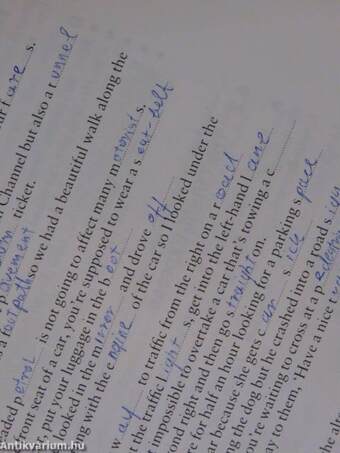 f are s.
Channel but also a t unnel
ticket.
p avement
a footpath so we had a beautiful walk along the
petrol is not going to affect many motorists.
seat of a car, you're supposed to wear a seat-belt
put your luggage in the boot
in the mirror and drove off
with the engine of the car so I looked under the
way to traffic from the right on a road
the traffic lights, get into the left-hand lane
impossible to overtake a car that's towing a c
right and then go straight on.
for half an hour looking for a parking s
because she gets car s ick
the dog but he crashed into a road sign
waiting to cross at a p
to them, 'Have a nice t
Antikvárium.hu